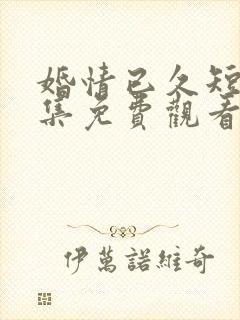 婚情已久短
集免費觀看
伊萬諾維奇